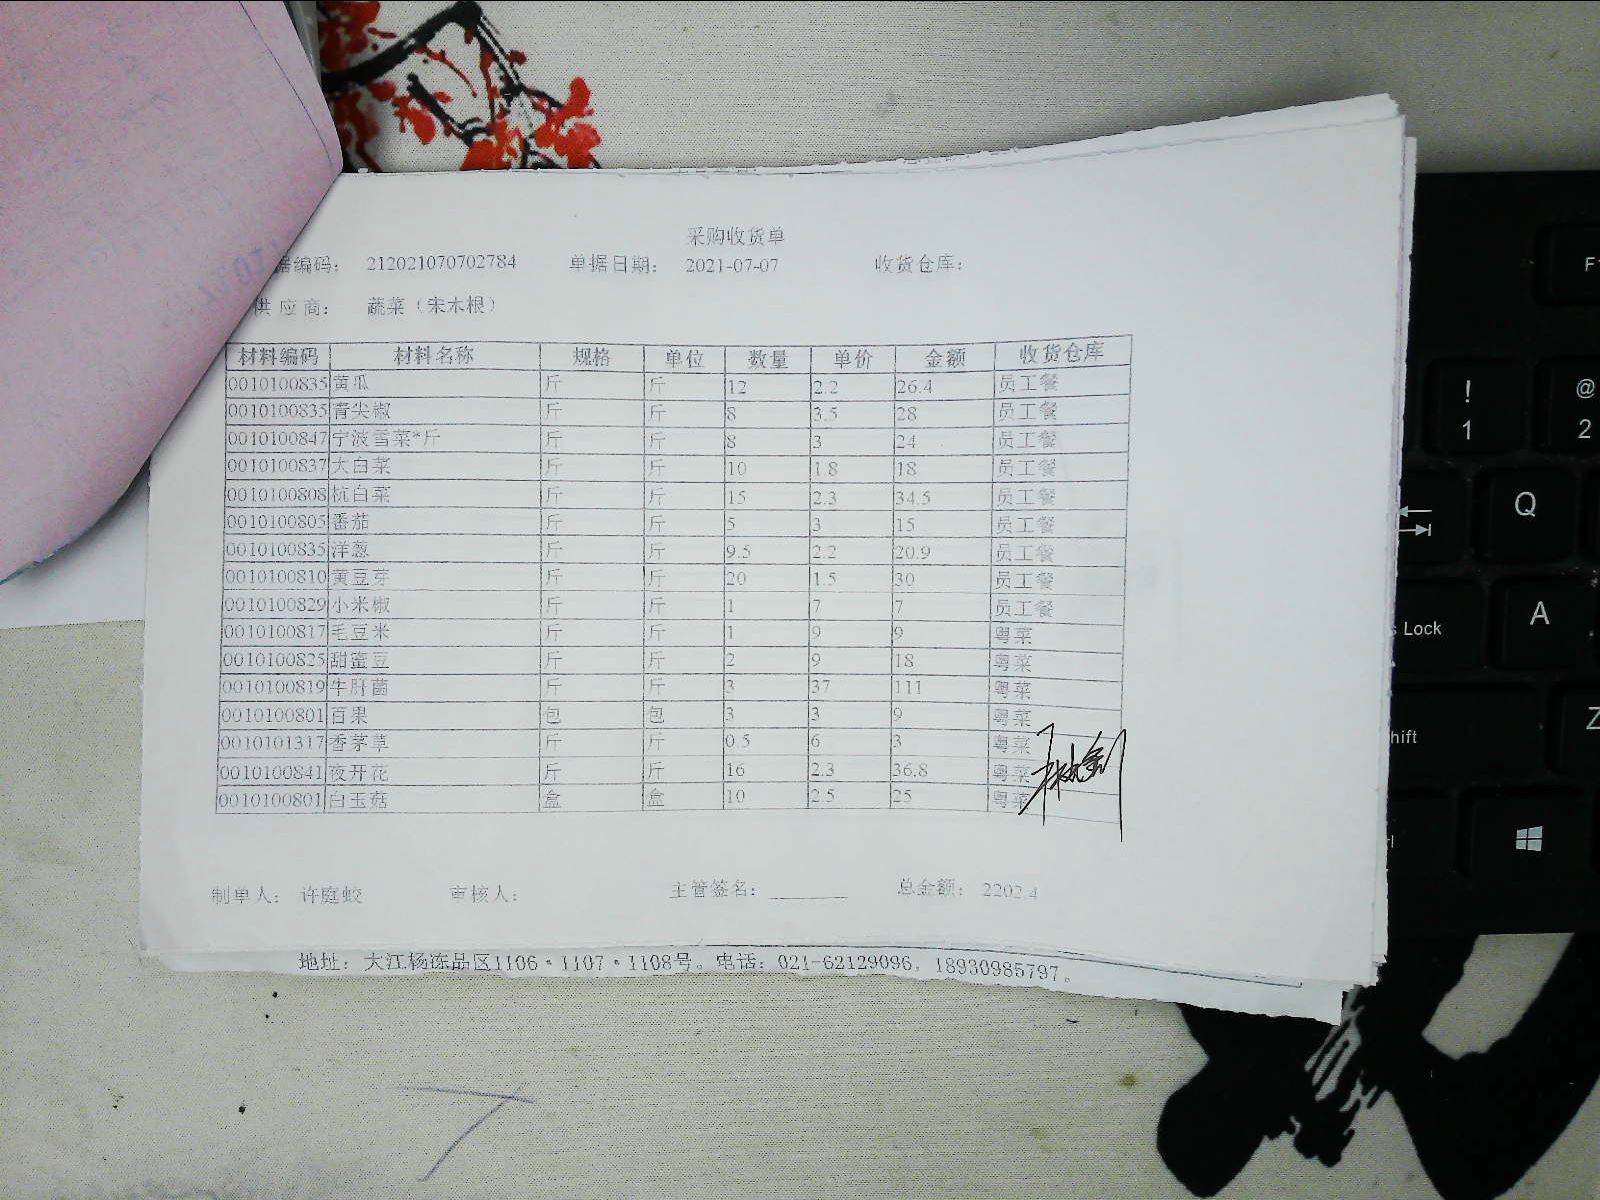 采购收货单
据编码： 212021070702784 单据日期： 2021-07-07 收货仓库：
供 应 商： 蔬菜（宋木根）
材料编码 材料名称 规格 单位 数量 单价 金额 收货仓库
0010100835 黄瓜 斤 斤 12 2.2 26.4 员工餐
0010100835 青尖椒 斤 斤 8 3.5 28 员工餐
0010100847 宁波雪菜*斤 斤 斤 8 3 24 员工餐
0010100837 大白菜 斤 斤 10 1.8 18 员工餐
0010100808 杭白菜 斤 斤 15 2.3 34.5 员工餐
0010100805 番茄 斤 斤 5 3 15 员工餐
0010100835 洋葱 斤 斤 9.5 2.2 20.9 员工餐
0010100810 黄豆芽 斤 斤 20 1.5 30 员工餐
0010100829 小米椒 斤 斤 1 7 7 员工餐
0010100817 毛豆米 斤 斤 1 9 9 粤菜
0010100825 甜蜜豆 斤 斤 2 9 18 粤菜
0010100819 牛肝菌 斤 斤 3 37 111 粤菜
0010100801 百果 包 包 3 3 9 粤菜
0010101317 香茅草 斤 斤 0.5 6 3 粤菜
0010100841 夜开花 斤 斤 16 2.3 36.8 粤菜
0010100801 白玉菇 盒 盒 10 2.5 25 粤菜
制单人： 许庭蛟 审核人： 主管签名： 总金额： 2202.4
地址：大江杨冻品区1106·1107·1108号。电话：021-62129096，18930985797。
!
1
@
2
Q
A
Lock
Z
hift